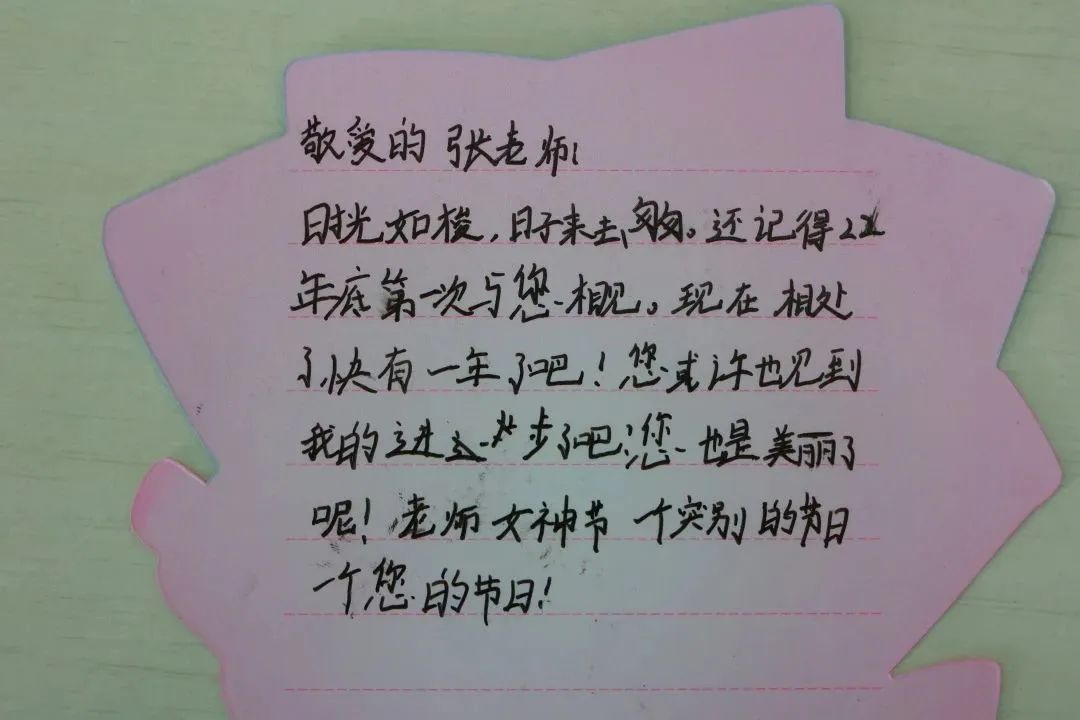 敬爱的张老师!
时光如梭,日子来去匆匆。还记得22
年底第一次与您相见。现在相处
了快有一年了吧!您或许也见到
我的进步了吧;您也是美丽了
呢!老师女神节一个突别的节日
一个您的节日!